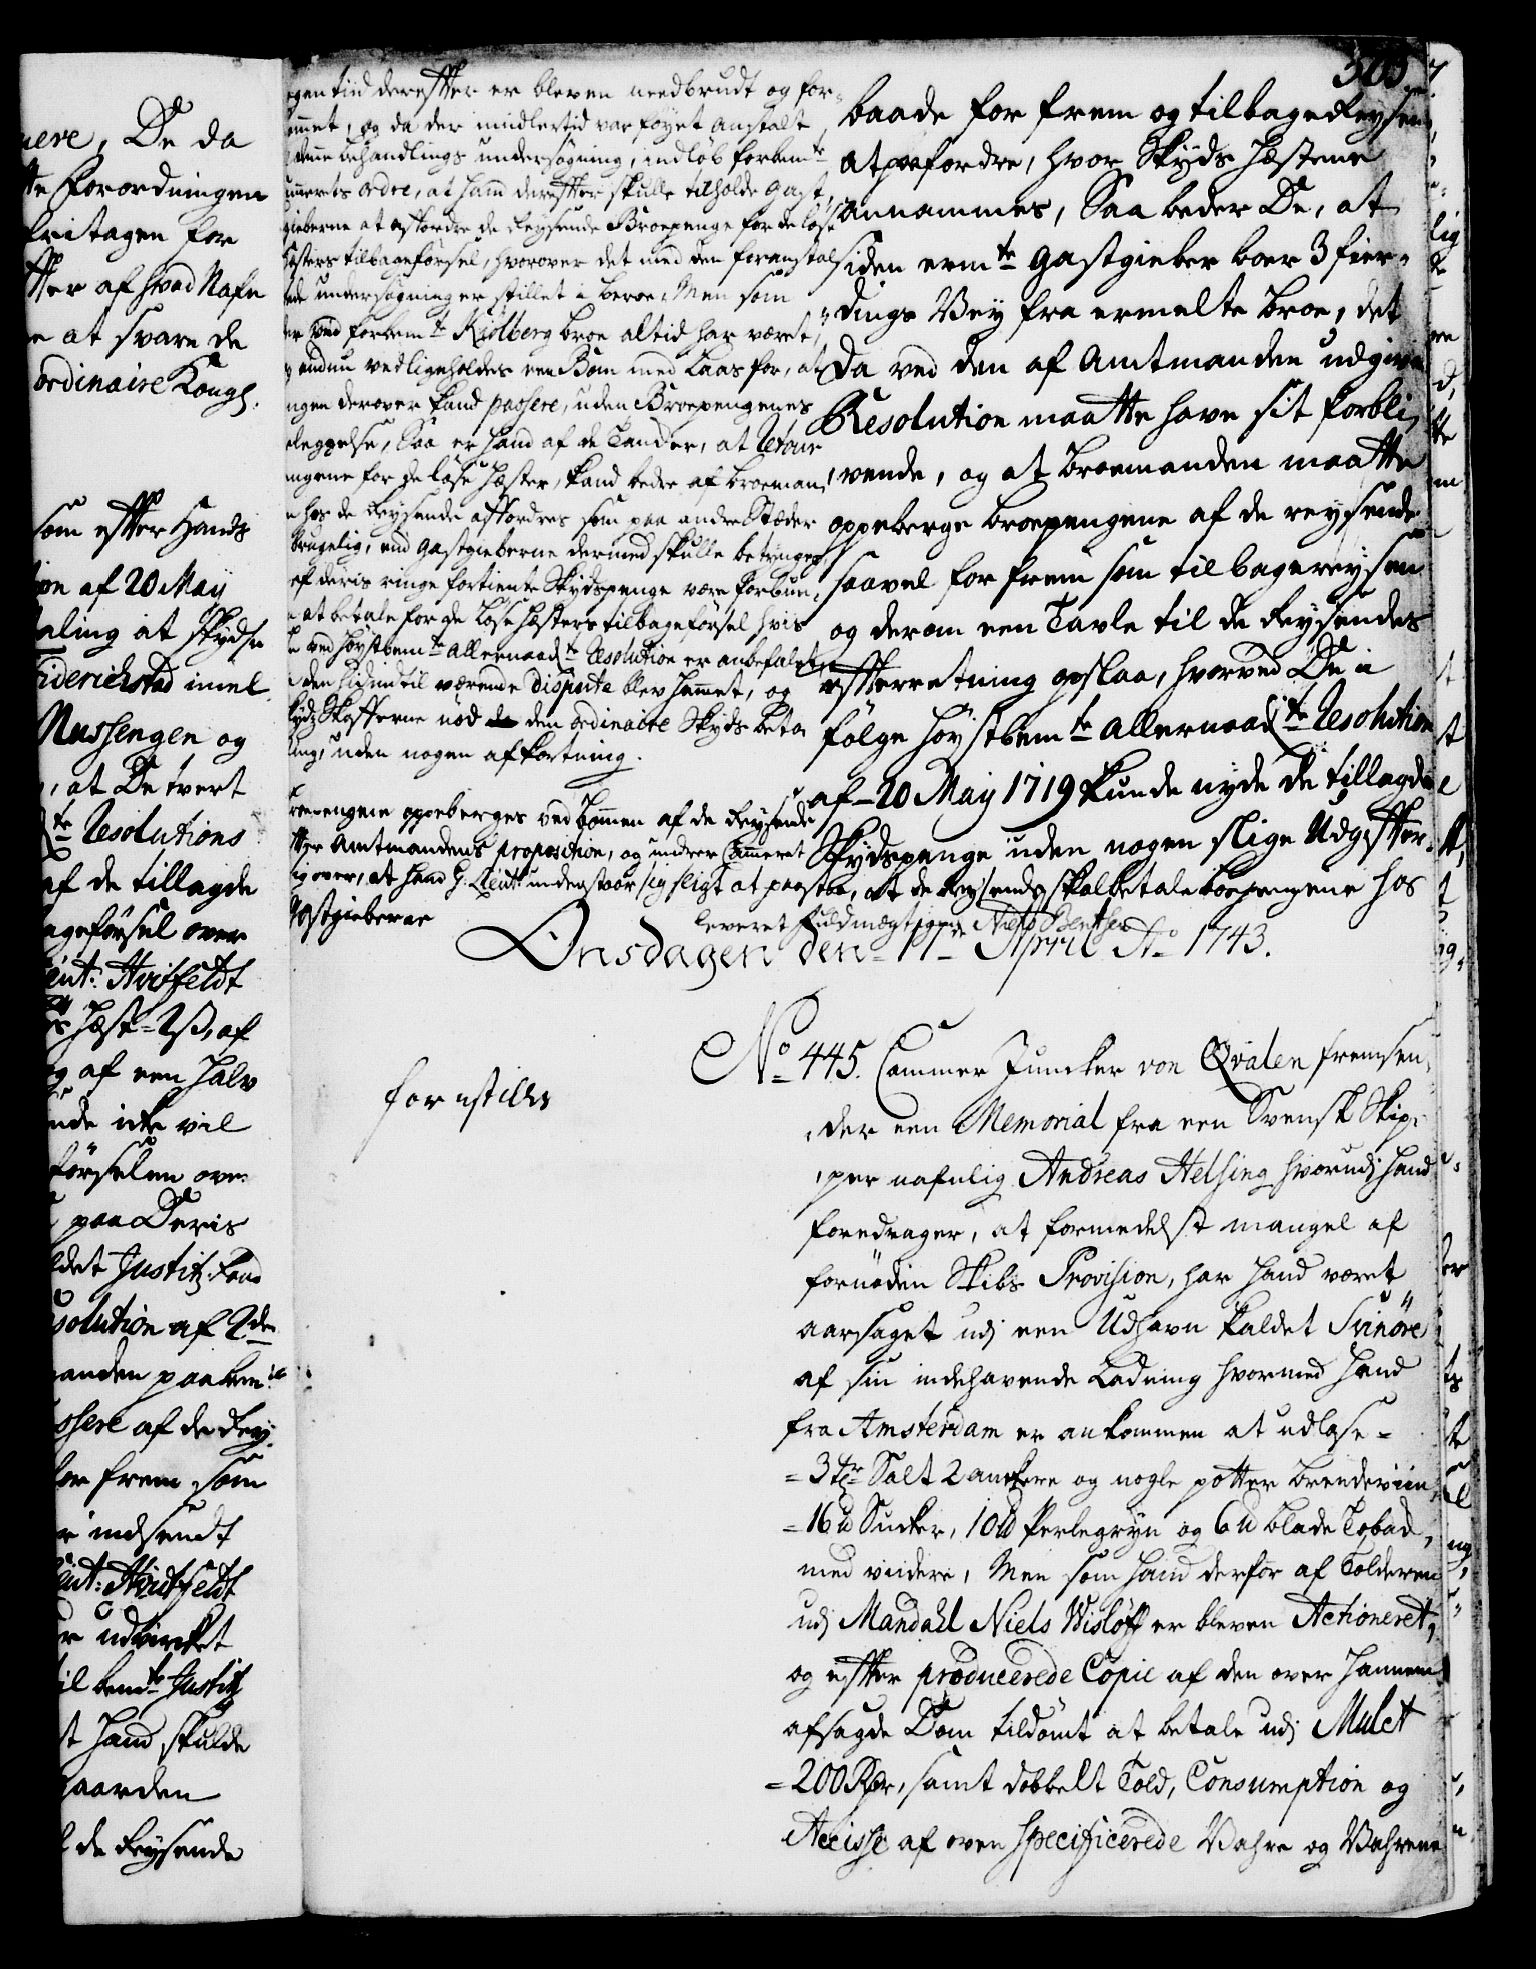 505
uere, De da
te Forordningen
fritagen for
ter af hvad Nafn
e at svare de
ordinaire Kongl.
som efter Hands
ion af 20 May
aling at skydse
riderichstad imel
Mussengen og
, at De tvert
te Resolutions
af de tillagde
ageførsel over
ieut: Hvitfeldt
Hæst = 2 ß, af
og af een halv
nde icke vil
førselen over
paa Deris
ldet Justitz: Raad
solution af 2den
anden paa bem.te
ssere af de Rey
for frem som
r indsendt
ieut: Hvitfeldt
r udvircket
il bemte Justitz
t hand skulde
gaarden
l de Reysende
egen tiid derefter er bleven needbrudt og for-
mmet, og da der imidlertid var føyet anstalt
denne behandlings undersøgning, indløb forbemte
merets ordre, at hand derefter skulle tilholde Gast
gieberne at affordre de Reysende Broepenge for de løse
hæsters tilbageførsel, hvorover det med den foranstal
tede undersøgning er stillet i beroe. Men som
er ved forbem.te Kiølberg broe altid har været,
endnu vedligeholdes een Bom med Laas for, at
ingen derover kand passere, uden Broepengenes
leggelse, Saa er hand af de Tancker, at Retour
ngene for de løse hæster, kand bedre af broeman
hos de Reysende affordres som paa andre Stæder
brugelig, end Gastgieberne dermed skulle betynges
af deris ringe fortiente Skydspenge være forbun
at betale for de løse hæsters tilbageførsel hvis
ved høystbemte allernaadte Resolution er anbefalet
den hidindtil værende dispute blev hæmmet, og
kydz Skafferne nød den ordinaire Skyds beta
ling, uden nogen afkortning.
roepengene oppeberges ved bommen af de Reysende
efter Amtmandens proposition, og undrer Cammeret
ig over, at hand G: Lieut: understaar sig sligt at paastaa, at de Reysende skal betale broepengene hos
Gastgieberne
baade for frem og tilbage Reysen
at paafordre, hvor Skyds Hæstene
annammes, Saa beder De, at
siden ermte Gastgieber boer 3 fier-
dings Vey fra ermelte broe, det
da ved den af Amtmanden udgivne
Resolution maatte have sit forbli
vende, og at broemanden maatte
oppeberge broepengene af de reysende
saavel for frem som tilbagereysen
og derom een Tavle til de Reysendes
efterretning opslaa, hvorved De i
følge høystbemte allernaadte Resolution
af 20 May 1719 kunde nyde de tillagde
Skydspenge uden nogen slige Udgifter.
leveret fuldmægtigen Niels Benthen
Onsdagen den 17de April Ao 1743.
forestilles
No 445. Cammer Juncker von Qvalen fremsen
der een Memorial fra een Svensk Skip
per nafnlig Andreas Helsing hvorudj hand
foredrager, at formedelst mangel af
fornøden Skibs Provision, har hand været
aarsaget udj een Udhavn kaldet Svinøre
af sin indehavende Ladning hvormed hand
fra Amsterdam er ankommen at udlose
3 tdr Salt 2 anckere og nogle potter brendeviin
16 ℔ Sucker, 10 ℔ Perlegryn og 6 ℔ blade Tobac,
med viidere, Men som hand derfor af Tolderen
udj Mandahl Niels Wisløff er bleven Actioneret,
og efter producerede Copie af den over hannem
afsagde Dom tildømt at betale udj Mulct
200 Rdr, samt dobbelt Told, Consumption og
Accisse af oven specificerede Vahre og Vahrene